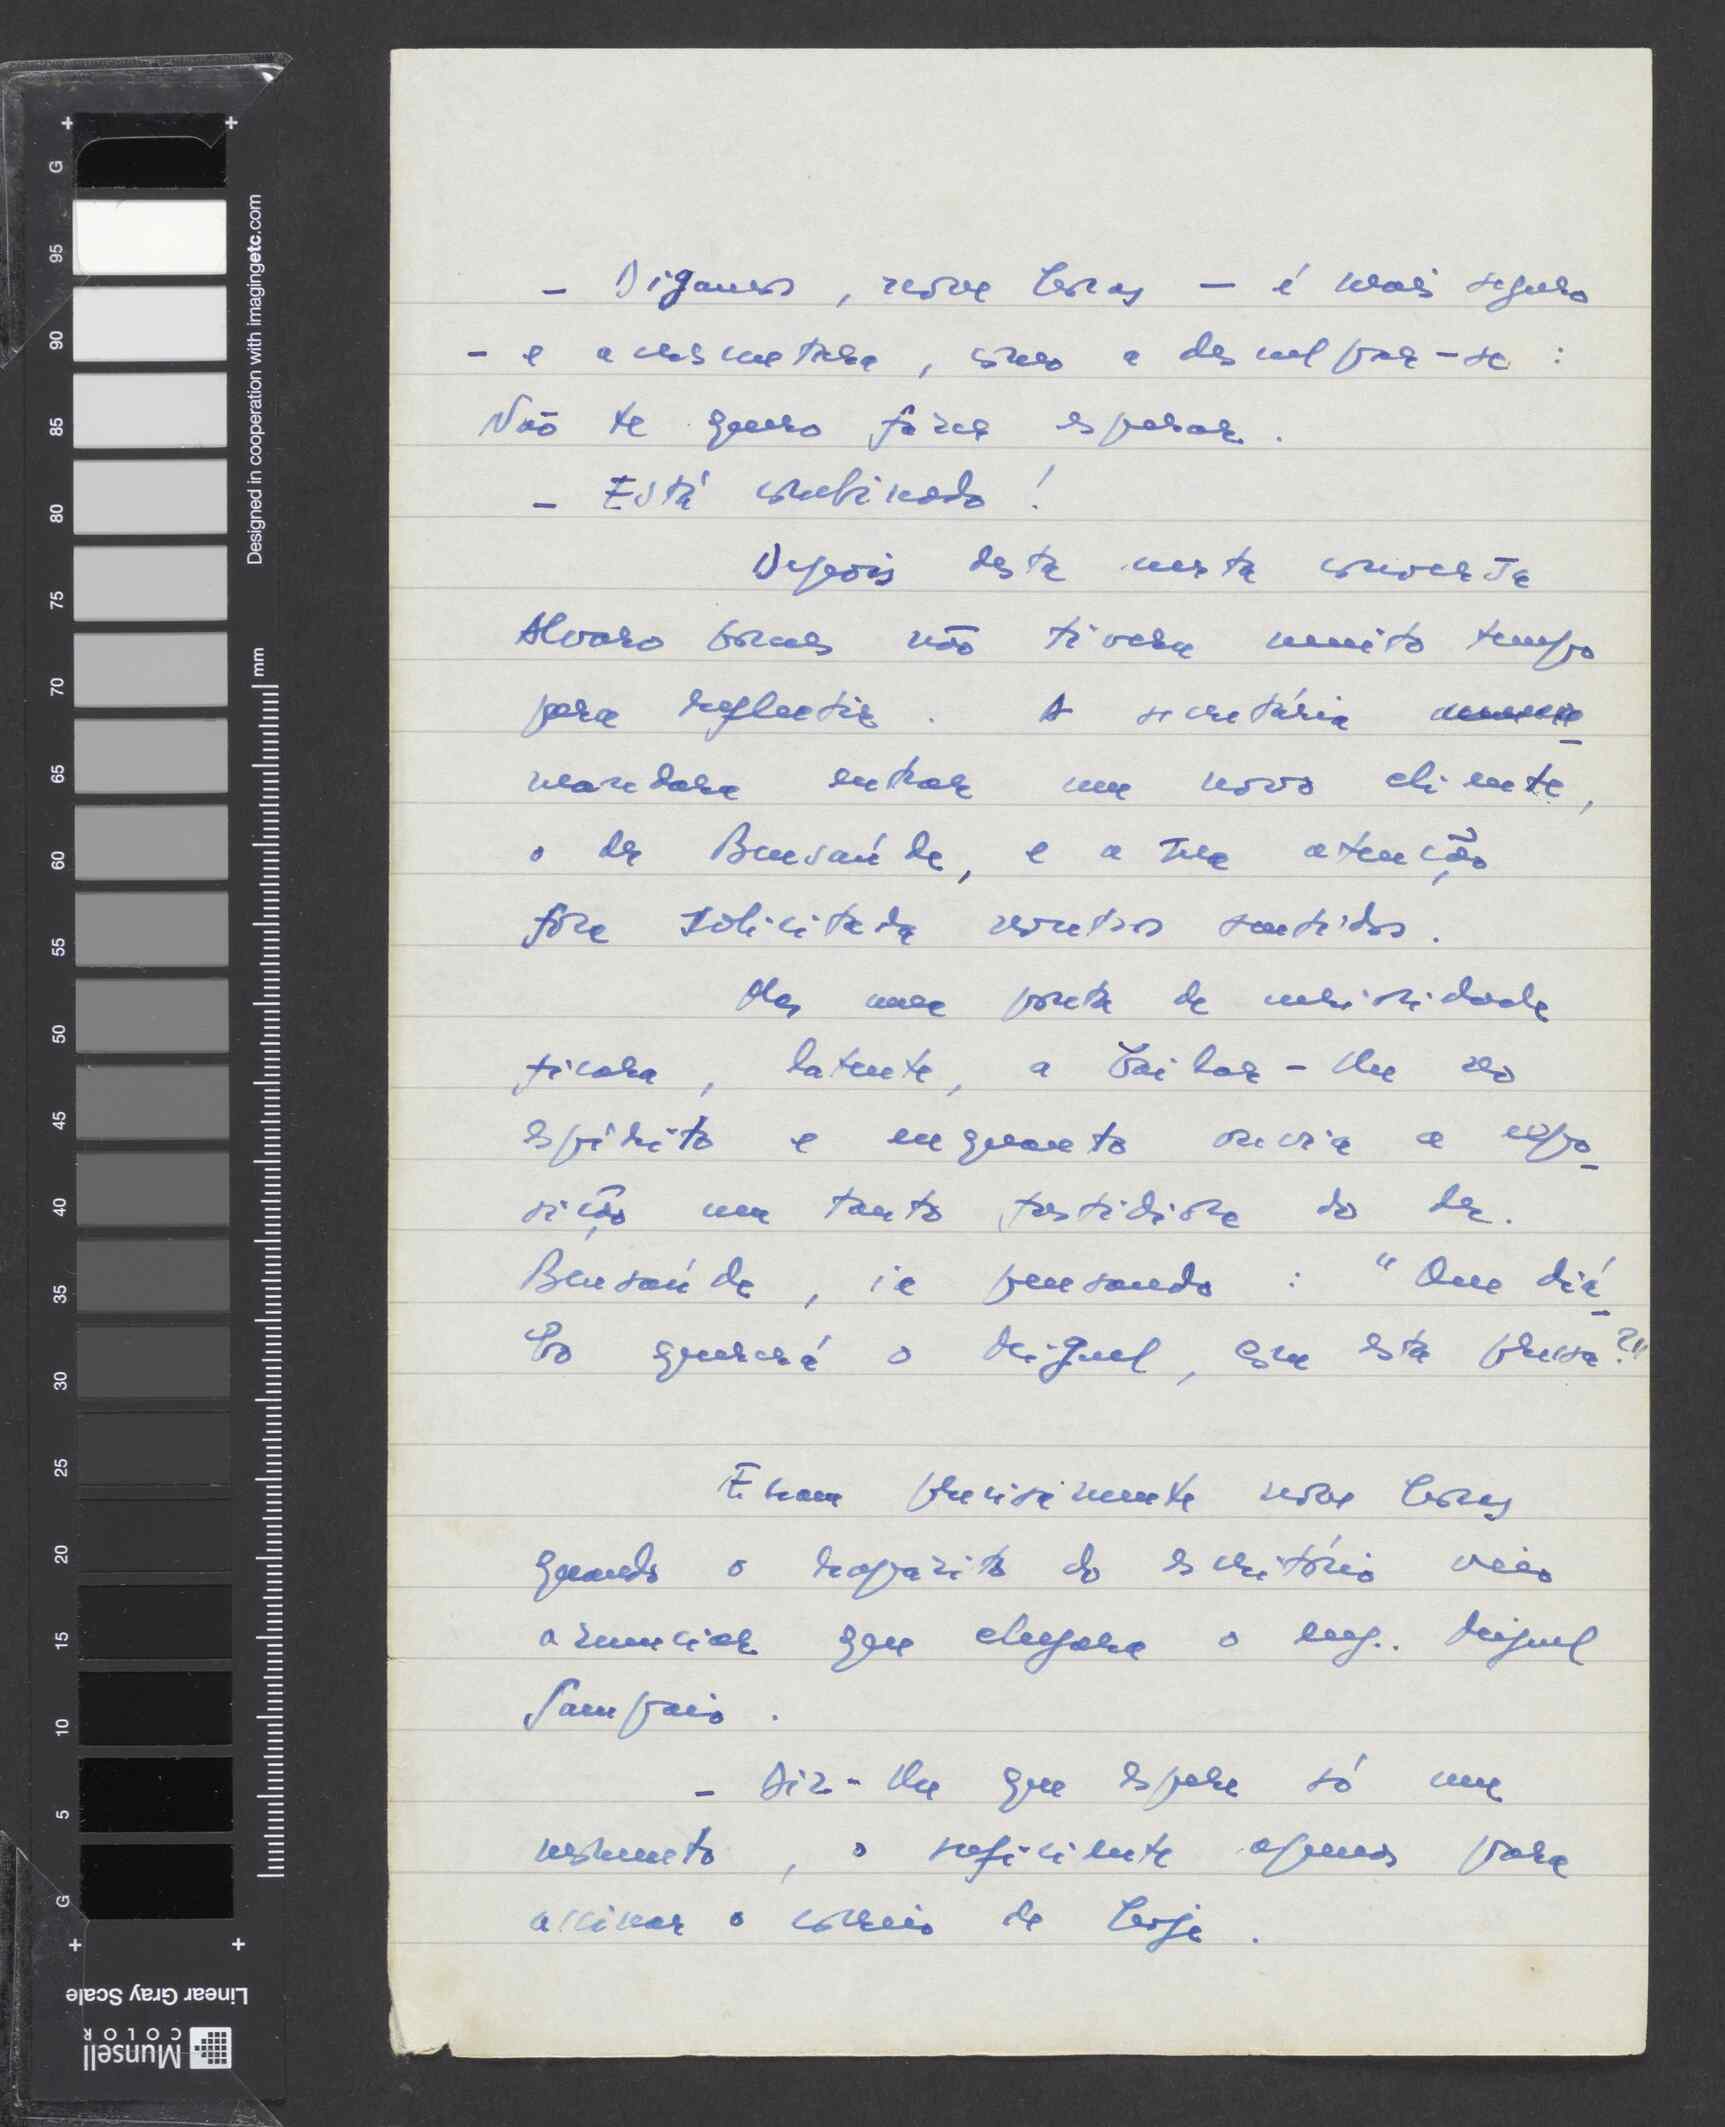 - Digamos, nove horas - é mais seguro
- e acrescentara, como a desculpar-se:
Não te quero fazer esperar.
- Está combinado!
Depois desta curta conversa
Alvaro Gomes não tivera muito tempo
para reflectir. A secretária
mandara entrar um novo cliente,
o dr Bensaúde, e a sua atenção
fora solicitada noutros sentidos.
Mas uma ponta de curiosidade
ficara, latente, a bailar-lhe no
espírito e enquanto ouvia a expo-
sição um tanto fastidiosa do dr.
Bensaúde, ia pensando: "Que diá-
bo quererá o Miguel, com esta pressa?"
Eram precisamente nove horas
quando o rapazito do escritório veio
anunciar que chegara o eng. Miguel
Sampaio.
- Diz-lhe que espere só um
momento, o suficiente apenas para
assinar o correio de hoje.
G 95 90 85 80 75 70 65 60 55 50 45 40 35 30 25 20 15 10 5 G
Designed in cooperation with imagingetc.com
mm
Linear Gray Scale
Munsell
COLOR